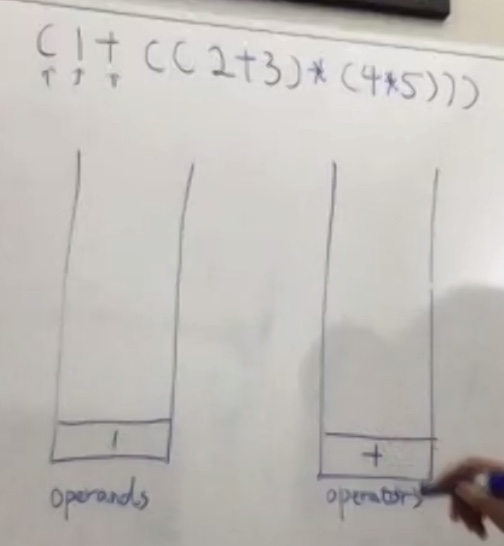 (1+((2+3)*(4*5)))
↑ ↑ ↑
1
+
operands
operators